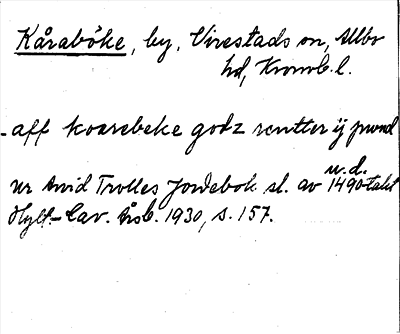 Kåraböke, by, Virestads sn, Allbo
hd, Kronob. l.
- aff koarebeke godz rentter ij pund
u. d.
ur Arvid Trolles Jordebok sl. av 1490-talet
Hylt.-Cav. Årsb. 1930, s. 157.